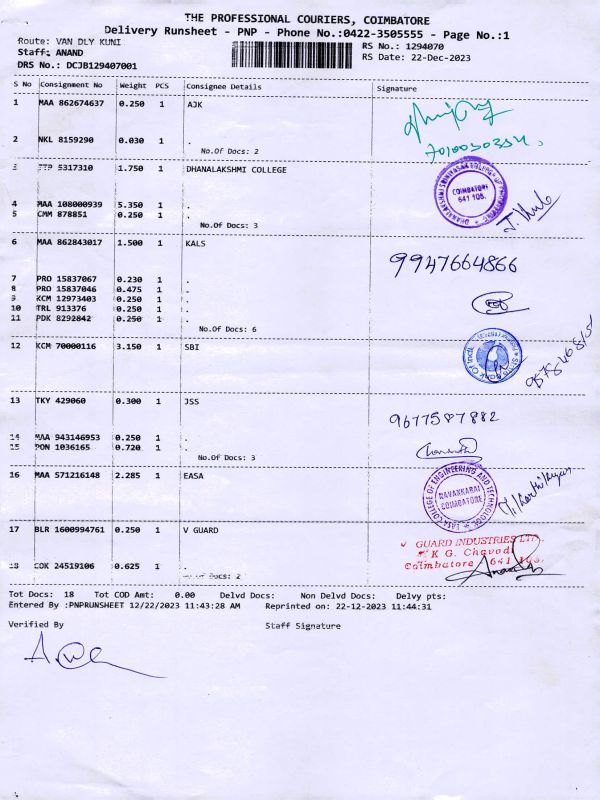 THE PROFESSIONAL COURIERS, COIMBATORE
Delivery Runsheet - PNP - Phone No.:0422-3505555 - Page No.:1
Route: VAN DLY KUNI
Staff: ANAND
DRS No.: DCJB129407001
RS No.: 1294070
RS Date: 22-Dec-2023
S No Consignment No Weight PCS Consignee Details Signature
1 MAA 862674637 0.250 1 AJK
2 NKL 8159290 0.030 1 .
No.Of Docs: 2
3 TTP 5317310 1.750 1 DHANALAKSHMI COLLEGE
COIMBATORE
641 105.
4 MAA 108000939 5.350 1 .
5 CMM 878851 0.250 1 .
No.Of Docs: 3
6 MAA 862843017 1.500 1 KALS
9947664866
7 PRO 15837067 0.230 1 .
8 PRO 15837046 0.475 1 .
9 KCM 12973403 0.250 1 .
10 TRL 913376 0.250 1 .
11 PDK 8292842 0.250 1 .
No.Of Docs: 6
12 KCM 70000116 3.150 1 SBI
13 TKY 429060 0.300 1 JSS
9677587882
14 MAA 943146953 0.250 1 .
15 PON 1036165 0.720 1 .
No.Of Docs: 3
16 MAA 571216148 2.285 1 EASA
EASA COLLEGE OF ENGINEERING AND TECHNOLOGY
NAVAKKARAI
COIMBATORE
17 BLR 1600994761 0.250 1 V GUARD
V GUARD INDUSTRIES LTD.
K G. Chavadi
Coimbatore 641 105.
18 COK 24519106 0.625 1 .
No.Of Docs: 2
Tot Docs: 18 Tot COD Amt: 0.00 Delvd Docs: Non Delvd Docs: Delvy pts:
Entered By :PNPRUNSHEET 12/22/2023 11:43:28 AM Reprinted on: 22-12-2023 11:44:31
Verified By Staff Signature